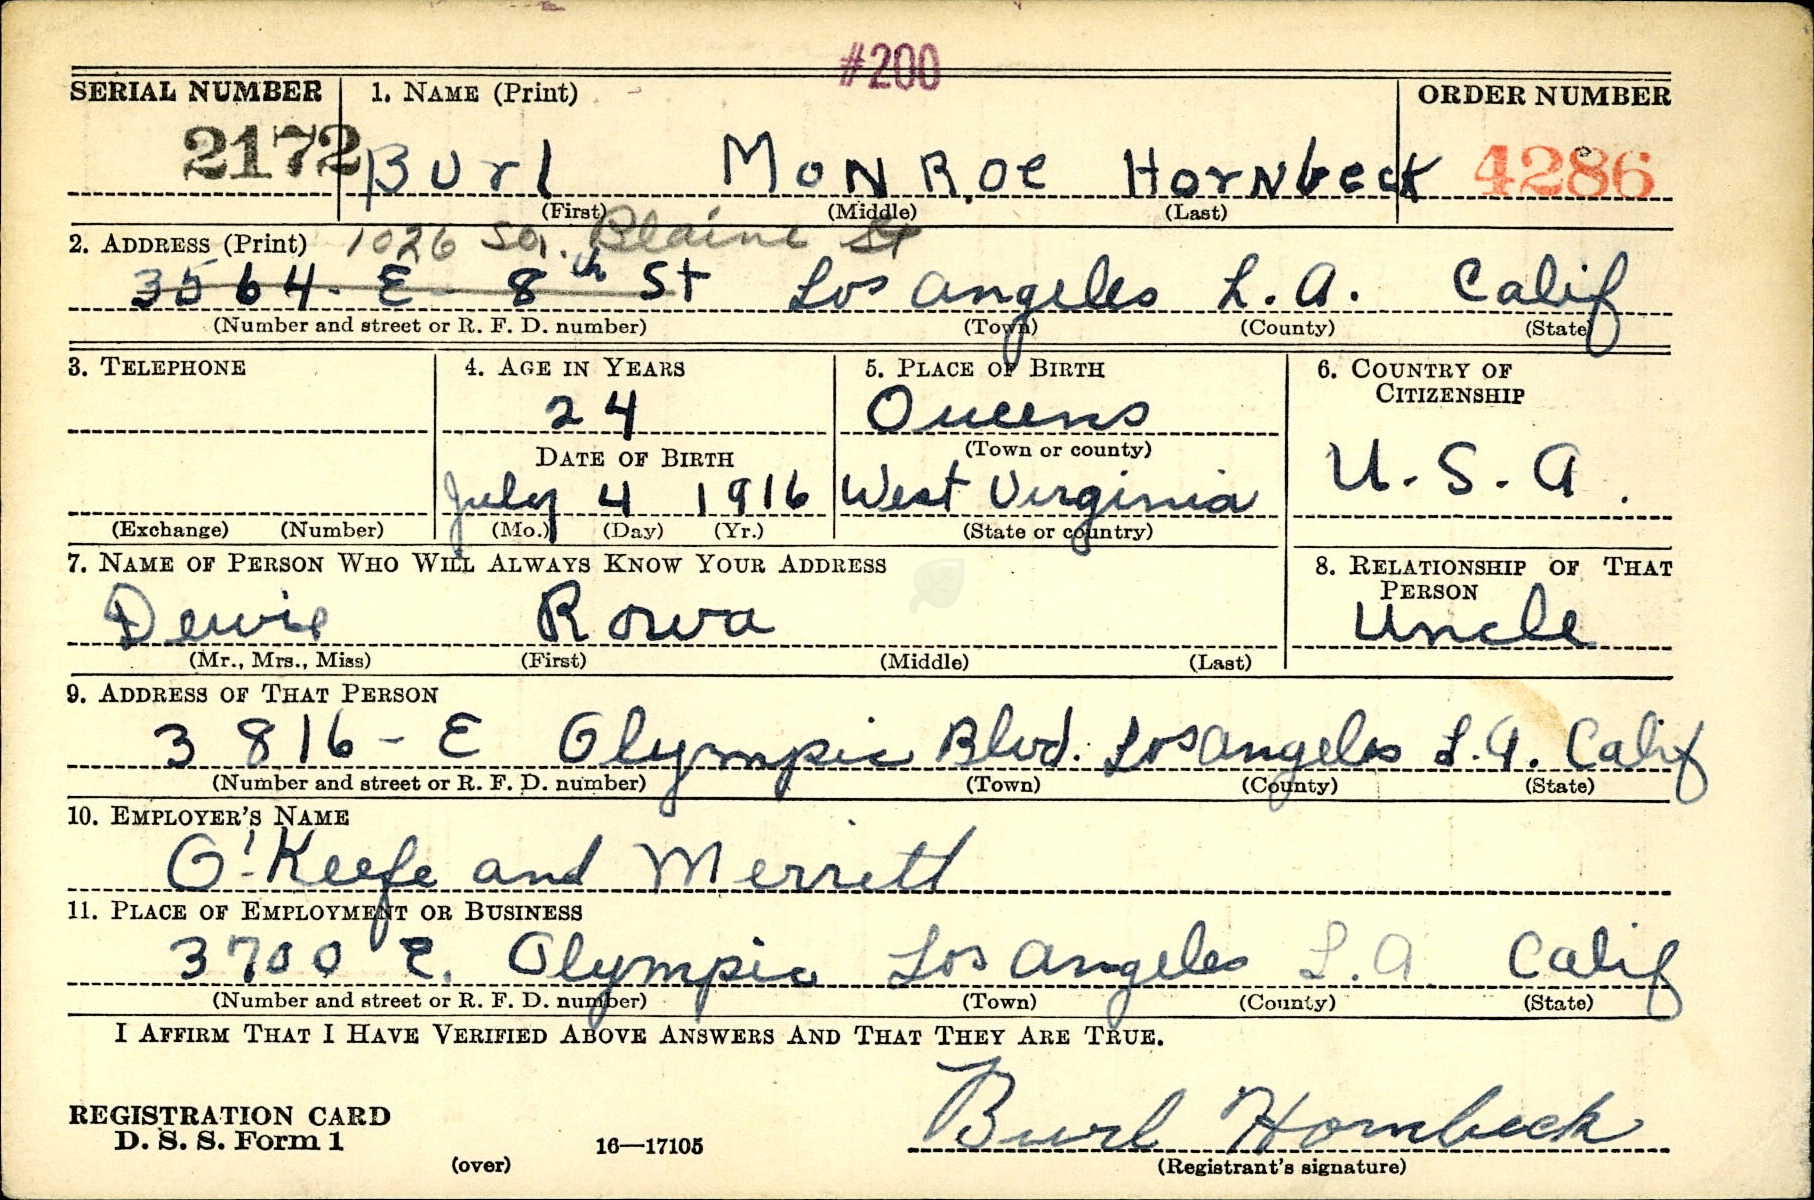 #200
SERIAL NUMBER 1. NAME (Print) ORDER NUMBER
2172 Burl MONROE HorNbeck 4286
(First) (Middle) (Last)
2. ADDRESS (Print) 1026 So. Blaine St
3564- E- 8th St Los Angeles L.A. Calif
(Number and street or R. F. D. number) (Town) (County) (State)
3. TELEPHONE 4. AGE IN YEARS 5. PLACE OF BIRTH 6. COUNTRY OF CITIZENSHIP
24 Queens
DATE OF BIRTH (Town or county)
July 4 1916 West Virginia U.S.A.
(Exchange) (Number) (Mo.) (Day) (Yr.) (State or country)
7. NAME OF PERSON WHO WILL ALWAYS KNOW YOUR ADDRESS 8. RELATIONSHIP OF THAT PERSON
Dewie Rowa Uncle
(Mr., Mrs., Miss) (First) (Middle) (Last)
9. ADDRESS OF THAT PERSON
3816- E Olympic Blvd. Los Angeles L.A. Calif
(Number and street or R. F. D. number) (Town) (County) (State)
10. EMPLOYER'S NAME
O'Keefe and Merrett
11. PLACE OF EMPLOYMENT OR BUSINESS
3700 E. Olympic Los Angeles L.A. Calif
(Number and street or R. F. D. number) (Town) (County) (State)
I AFFIRM THAT I HAVE VERIFIED ABOVE ANSWERS AND THAT THEY ARE TRUE.
Burl Hornbeck
REGISTRATION CARD
D. S. S. Form 1 16—17105
(over) (Registrant's signature)